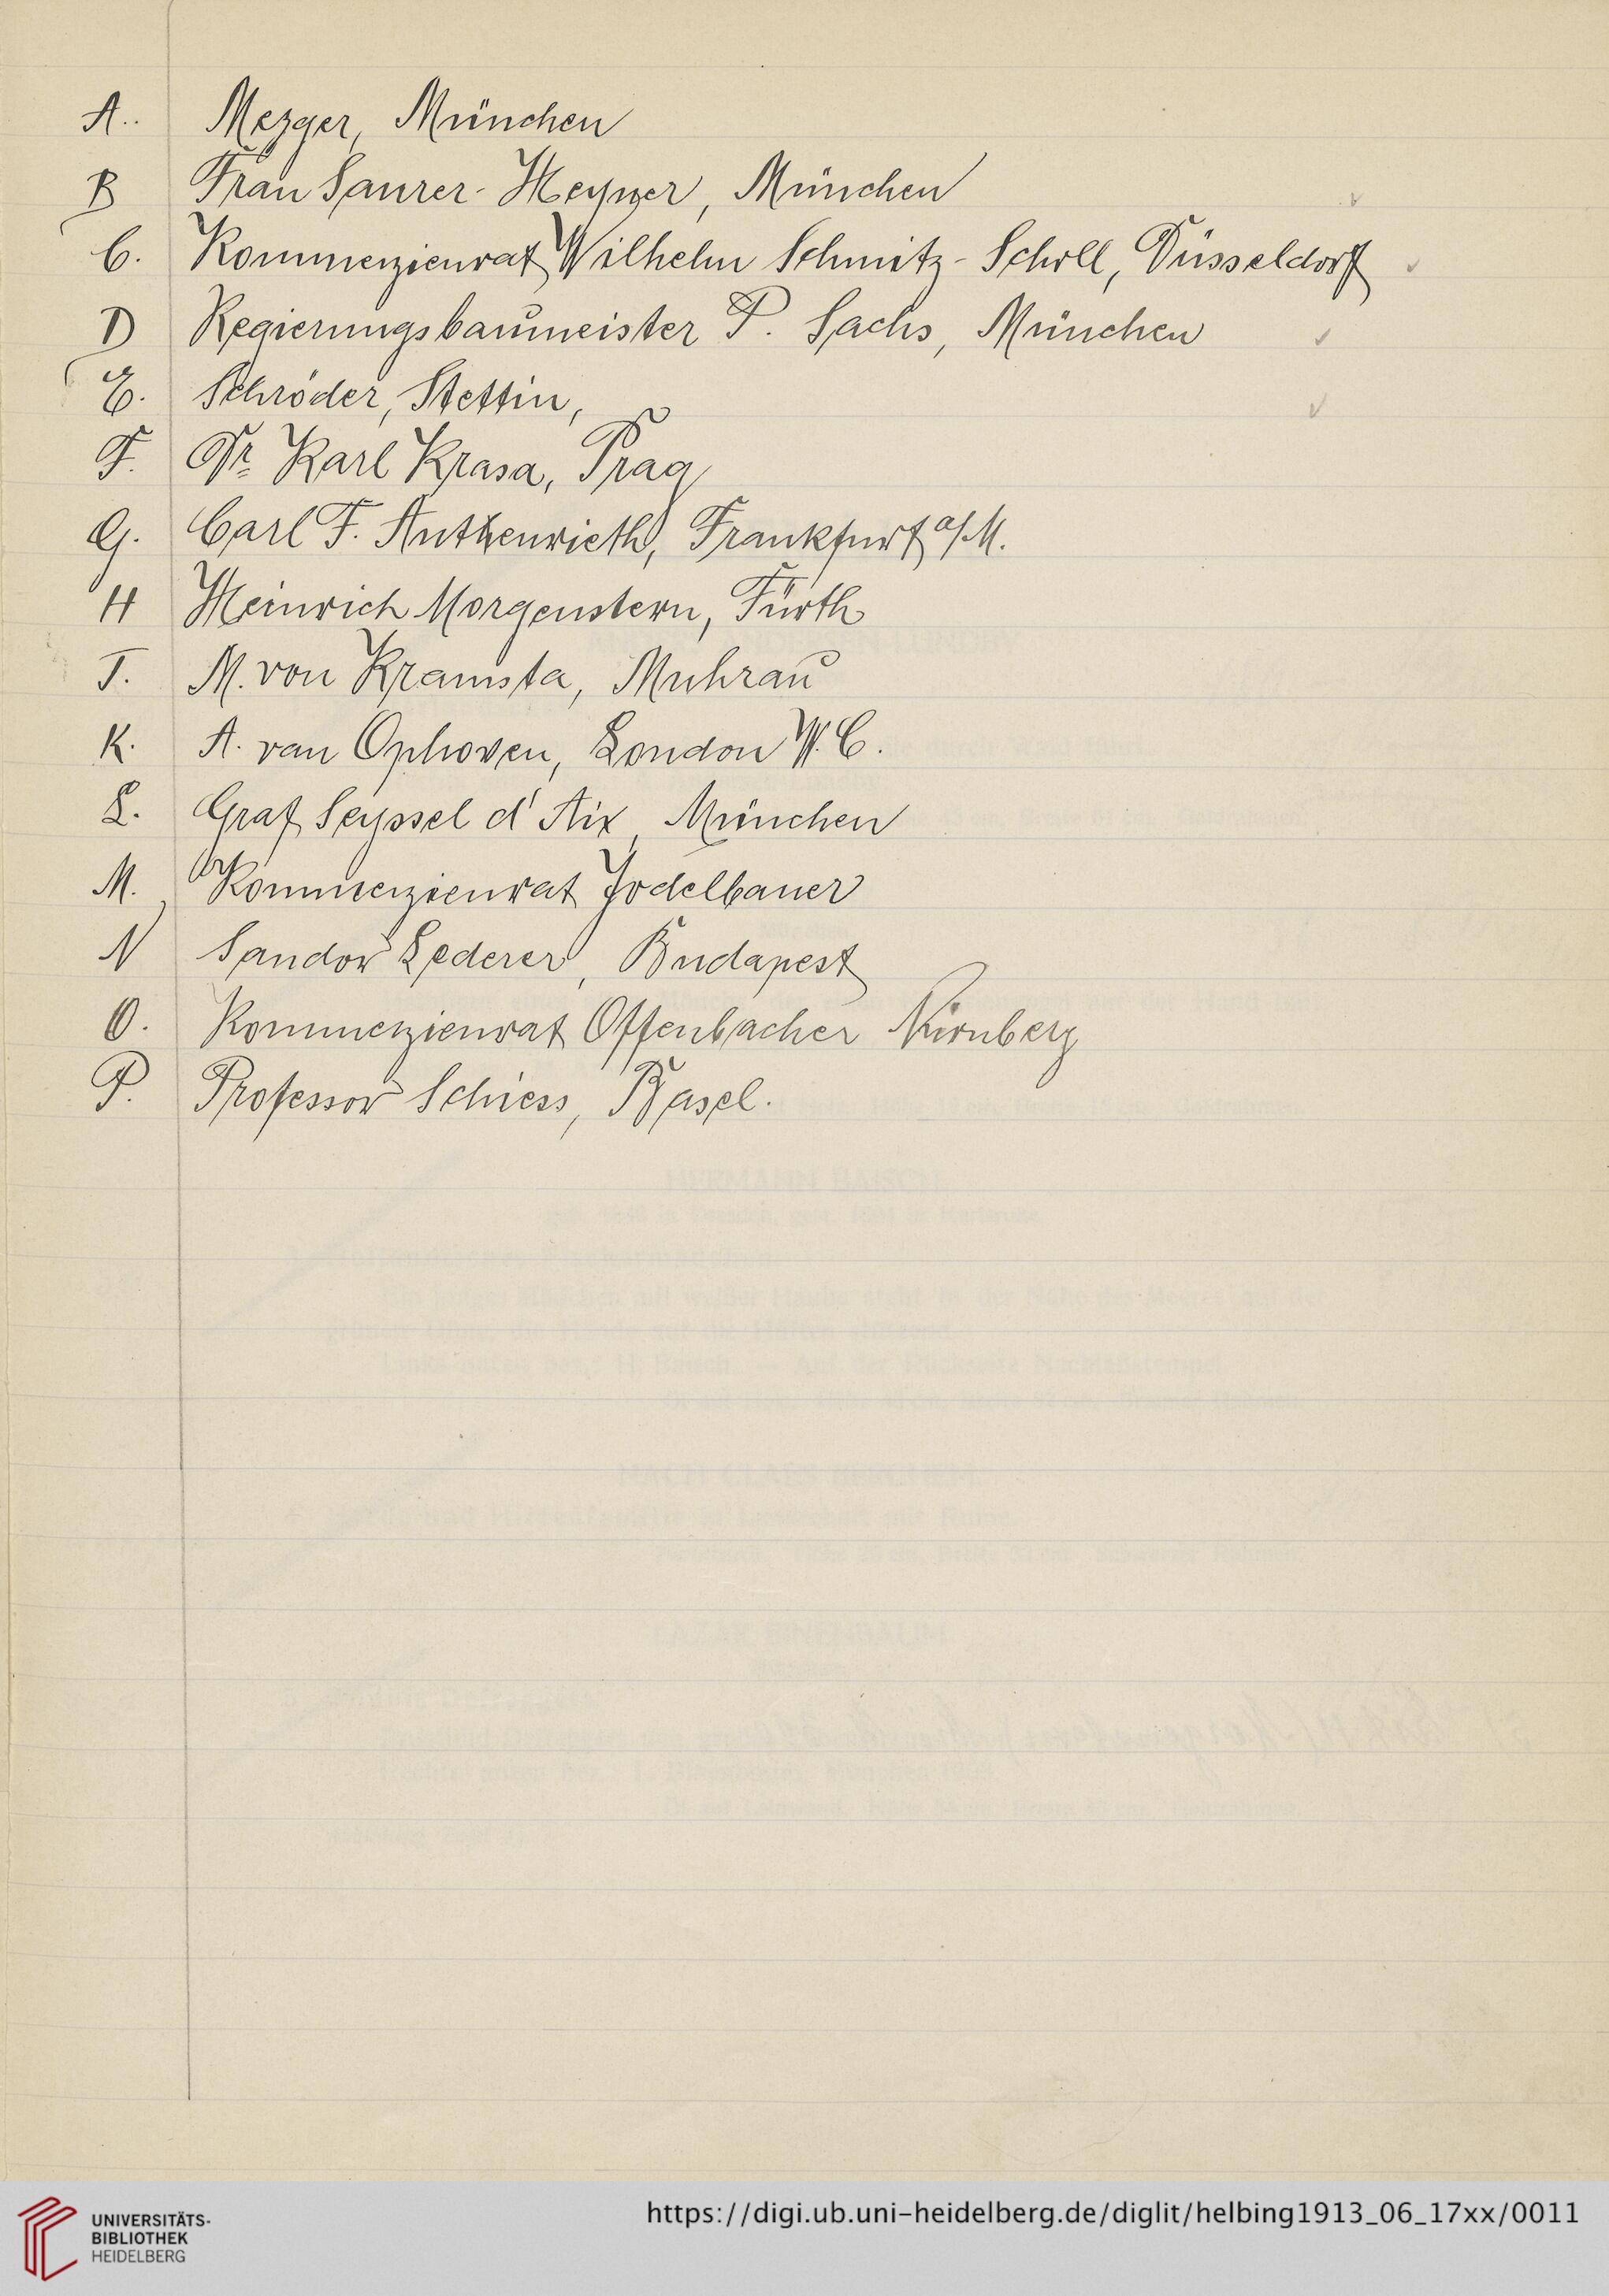 A.. Mezger, München
B Frau Saurer-Heyner, München
C. Kommerzienrat Wilhelm Schmitz-Scholl, Düsseldorf
D Regierungsbaumeister P. Sachs, München
E. Schröder, Stettin,
F. Dr Karl Krasa, Prag
G. Carl F. Authenrieth, Frankfurt a/M.
H Heinrich Morgenstern, Fürth
J. M. von Kramsta, Muhrau
K. A. van Ophoven, London W.C.
L. Graf Seyssel d'Aix, München
M. Kommerzienrat Jodelbauer
N Sandor Lederer, Budapest
O. Kommerzienrat Offenbacher Nürnberg
P. Professor Schiess, Basel.
UNIVERSITÄTS-
BIBLIOTHEK
HEIDELBERG
https://digi.ub.uni-heidelberg.de/diglit/helbing1913_06_17xx/0011